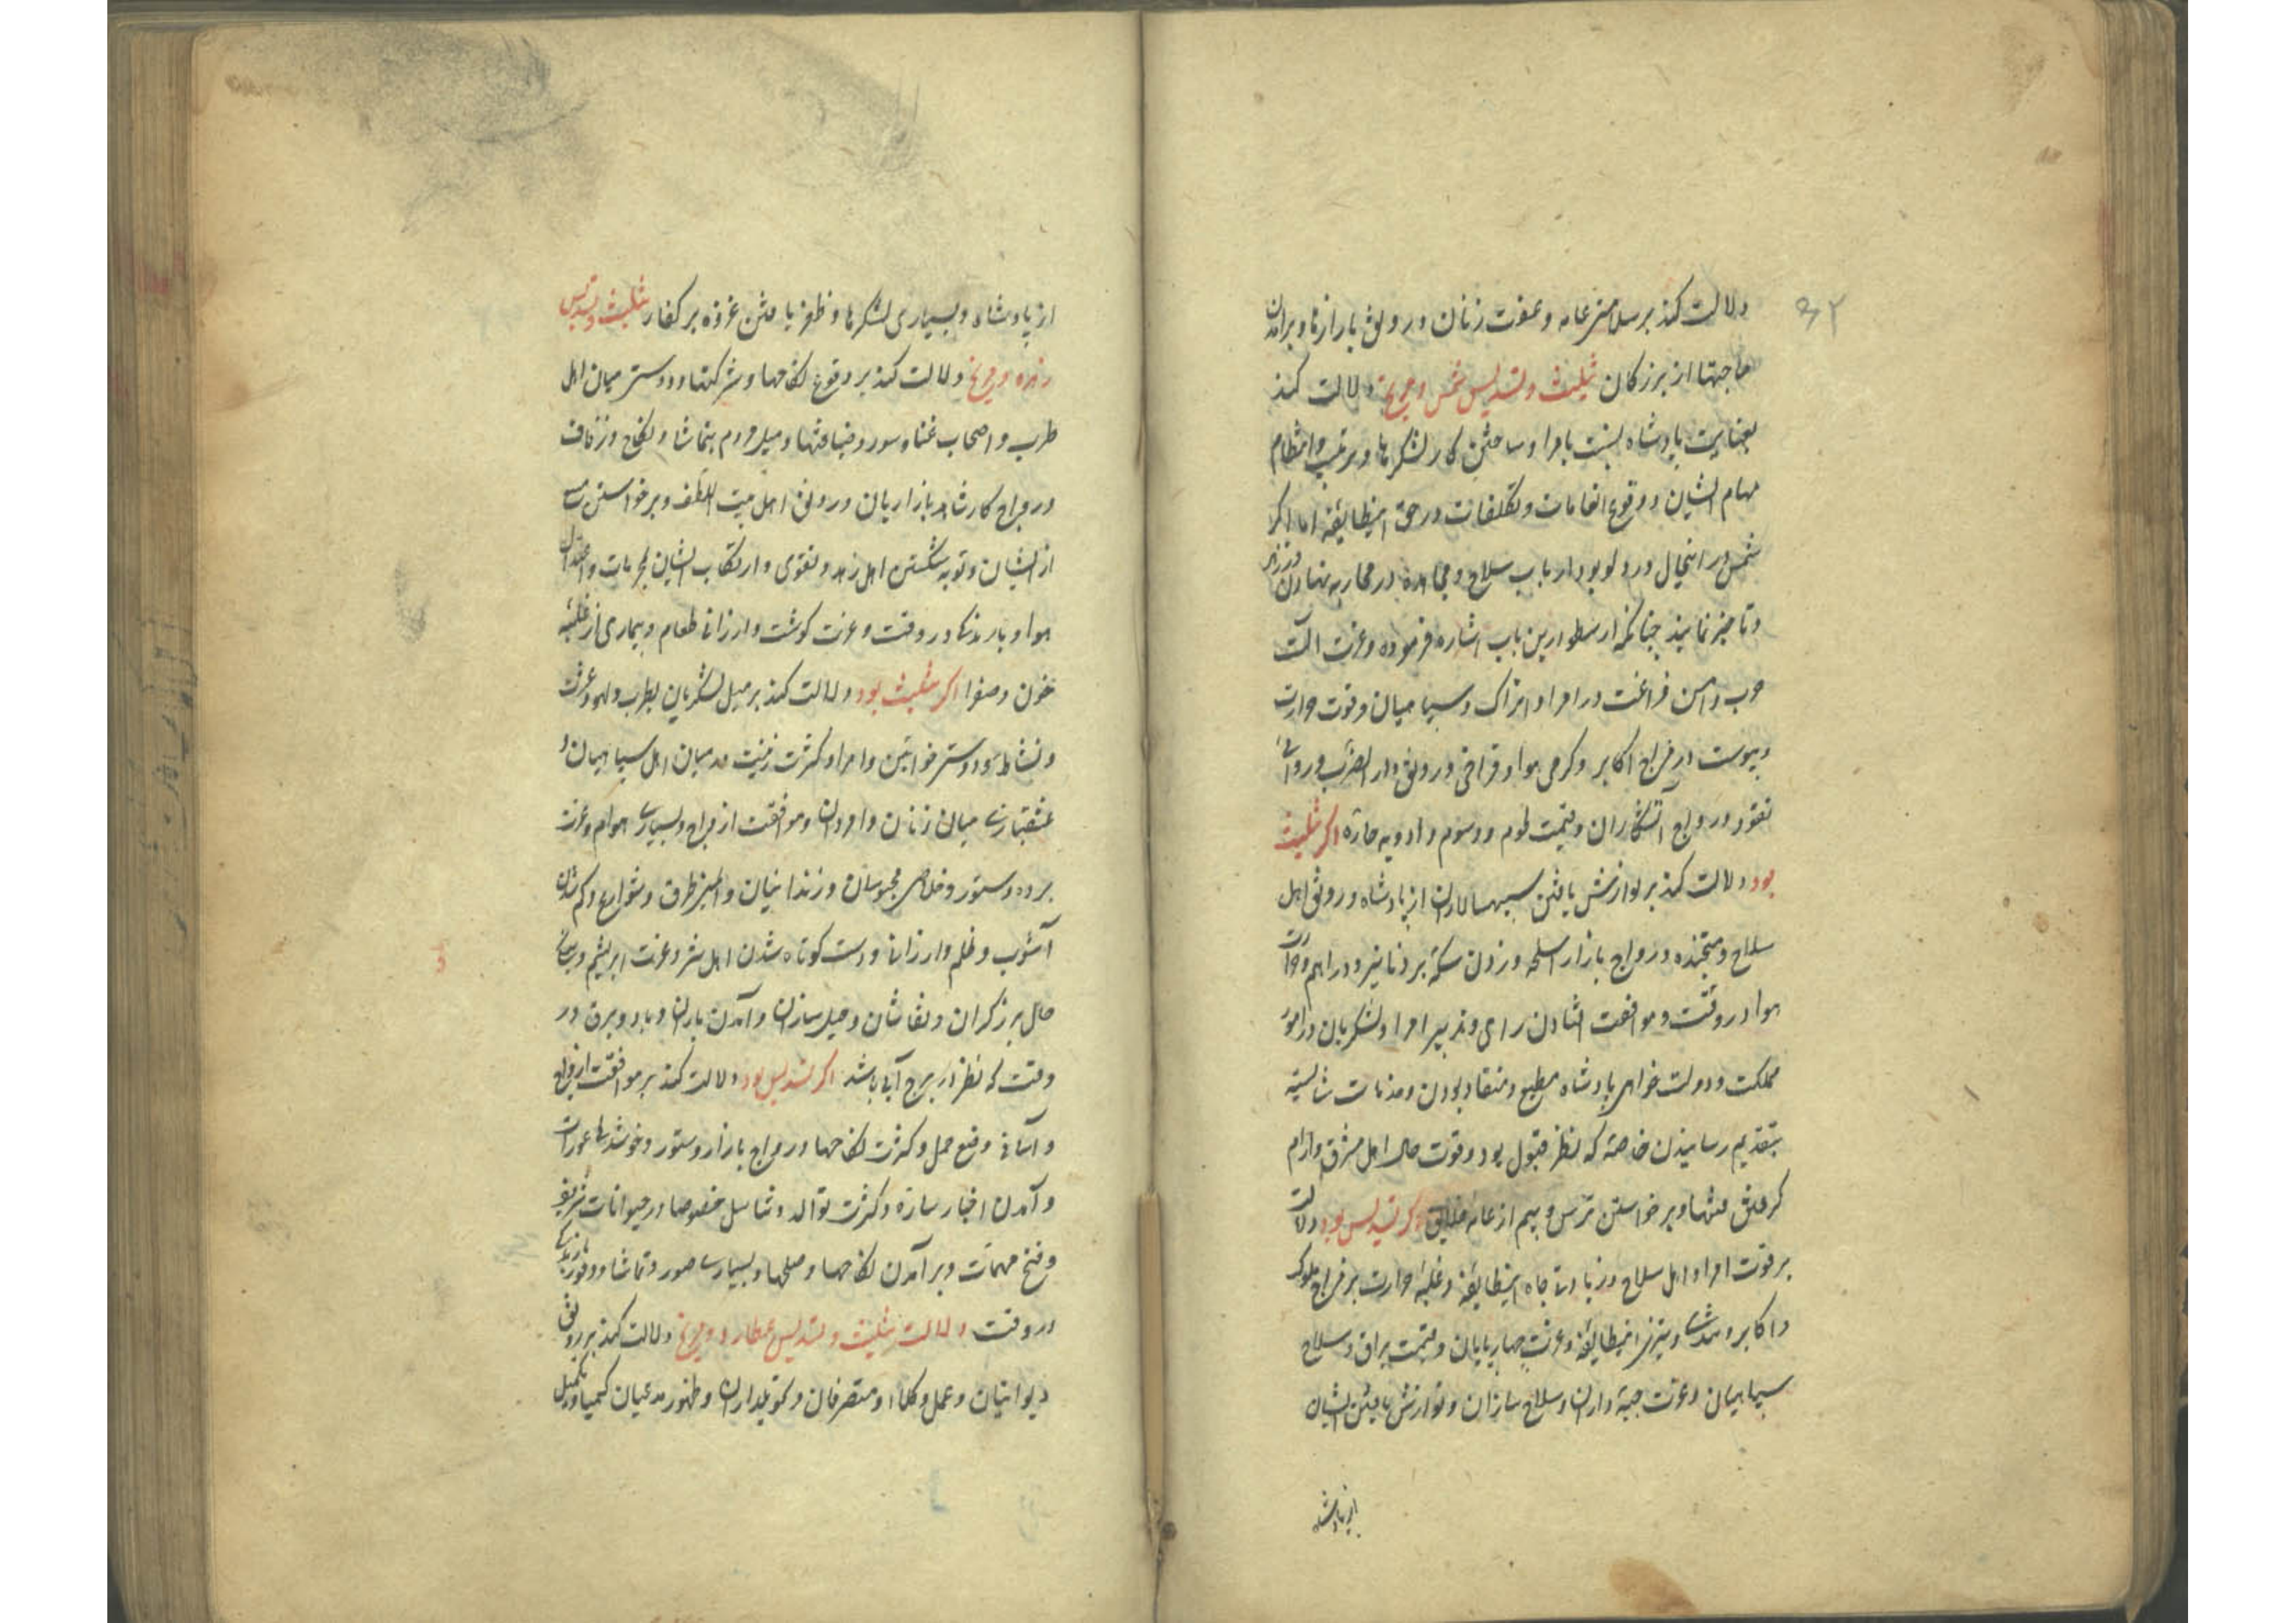 ۳۲
دلالت کند بر سلامتی عامه و عفت زنان و رونق بازارها و برآمدن
حاجتها از بزرگان تثلیث و تسدیس شمس و مریخ دلالت کند
بعنایت پادشاه نسبت بامرا و ساختن کار لشکرها و ترتیب و انتظام
مهام ایشان و وقوع انعامات و تکلفات در حق اینطایفه اما اگر
شمس در اینحال در دلو بود ارباب سلاح و مجاهده در محاربه تهاون ورزند
و تاخیر نمایند چنانکه ارسطو درین باب اشاره فرموده و عزت آلت
حرب و امن فراغت در امرا و اتراک و سپاهیان و قوت حرارت
و یبوست در مزاج اکابر و گرمی هوا و فراخی و رونق دار الضرب و روائی
نقود و رواج آتشکاران و قیمت لحوم و دسوم و ادویه حاره اگر تثلیث
بود دلالت کند بر نوازش یافتن سپهسالاران از پادشاه و رونق اهل
سلاح و متجنده و رواج بازار اسلحه و زدن سکه بر دنانیر و دراهم و حرارت
هوا در وقت و موافقت افتادن رای و تدبیر امرا و لشکریان در امور
مملکت و دولت خواهی پادشاه مطیع و منقاد بودن و خدمات شایسته
بتقدیم رسانیدن خاصه که نظر قبول بود و قوت حال اهل مشرق و آرام
گرفتن فتنها و برخواستن ترس و بیم از عامه خلایق اگر تسدیس بود دلالت
بر قوت امرا و اهل سلاح و زیادتی جاه اینطایفه و غلبه حرارت بر مزاج ملوک
و اکابر و تندی و تیزی اینطایفه و عزت چهارپایان و قیمت یراق و سلاح
سپاهیان و عزت جبه داران و سلاح سازان و نوازش یافتن ایشان
از پادشاه
از پادشاه و بسیاری لشکرها و ظفر یافتن غزوه بر کفار تثلیث و تسدیس
زهره و مریخ دلالت کند بر وقوع نکاحها و شرکتها و دوستی میان اهل
طرب و اصحاب غنا و سور و ضیافتها و میل مردم بتماشا و نکاح و زفاف
و رواج کار شاهد بازاریان و رونق اهل بیت اللطف و برخواستن
از ایشان و توبه شکستن اهل زهد و تقوی و ارتکاب ایشان بمحرمات و اعتدال
هوا و بارندگی در وقت و عزت گوشت و ارزانی طعام و بیماری از غلبه
خون و صفرا اگر تثلیث بود دلالت کند بر میل لشکریان بطرب و لهو و عزت
و نشاط و دوستی خواتین و امرا و کثرت زینت در میان اهل سپاهیان و
عشقبازی میان زنان و امردان و موافقت ازواج و بسیاری هوام و عزت
برده و ستور و خلاصی محبوسان و زندانیان و ایمنی طرق و شوارع و کم شدن
آشوب و ظلم و ارزانی و دست کوتاه شدن اهل شر و عزت ابریشم و
حال برزگران و نقاشان و حیل سازان و آمدن باران و باد و برق در
وقت که نظر در برج آبی باشد اگر تسدیس بود دلالت کند بر موافقت ازواج
و آسانی وضع حمل و کثرت نکاحها و رواج بازار ستور و خوشدلی عورات
و آمدن اخبار ساره و کثرت توالد و تناسل خصوصا در حیوانات شریفه
و فتح مهمات و برآمدن نکاحها و صلحها و بسیاری صور و تماشا و وفور بارندگی
در وقت دلالت تثلیث و تسدیس عطارد و مریخ دلالت کند بر رونق
دیوانیان و عمل وکلاء و متصرفان و تحویلداران و ظهور مدعیان کیمیا و تکمیل